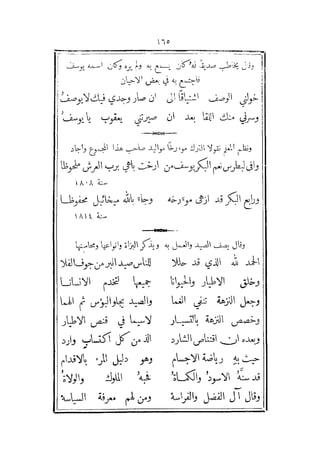 ١٦٥
وقال يخاطب صديقاً له وكان يسمع به ولم يره وكان اسمه يوسف
فاجتمع به في بعض الاحيان
خولني الوصف اشتياقاً الى ان صار وجدي فيك لا يوصفُ
وسرني منك اللقا بعد ان صيرتني يعقوب يا يوسفُ
ونظم المعلم نقولا الترك مورخاً مواليد صاحب هذا المجموع واجاد
وافى لبطرس نعم البكر يوسف من ارخت باهي برب العرش ملحوظا
سنة ١٨٠٨
ورابع البكر قد ازهى مورخه وجاء بالله ميخائيل محفوظا
سنة ١٨١٤
وقال يصف الصيد والعمل به ويذكر البزاة وانواعها ومحاسنها
الحمد لله الذي قد حللا للناس صيد البر من جوف الفلا
وخلق الاطيار والحيوانا جميعها لتخدم الانسانا
وجعل النزهة تنفي الغما والصيد يجلو البؤس ثم الهما
وخصص النزهة بالتسيار لاسيما في قنص الاطيار
وبعده ان اقتناص الشارد الذ من كل اكتساب وارد
حيث به رياضة الاجسام وهو دليل المرء بالاقدام
قد سنَّه الاسود والكماة فحبه الملوك والولاة
وقال آل الفضل والفراسة ومن لهم معرفة السياسة